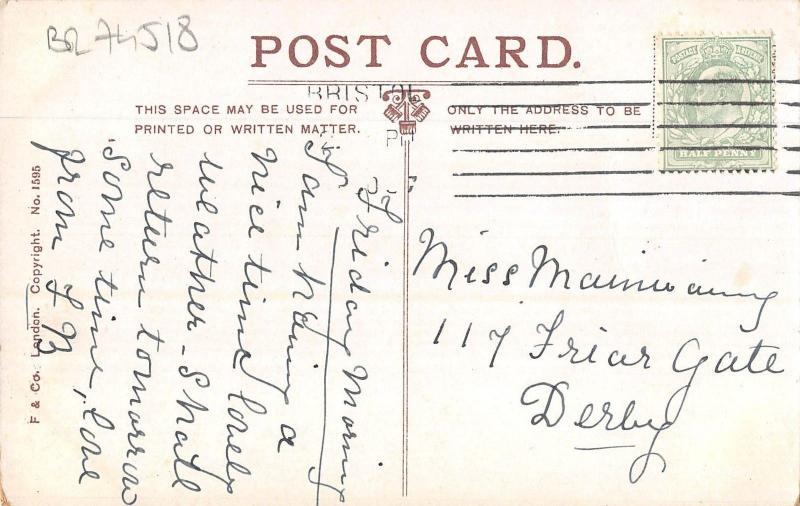 BR 74518
POST CARD.
BRISTOL
THIS SPACE MAY BE USED FOR
PRINTED OR WRITTEN MATTER.
ONLY THE ADDRESS TO BE
WRITTEN HERE.
POSTAGE & REVENUE
HALF PENNY
Friday Morning
I am having a
nice time lovely
weather - Shall
return tomorrow
some time, love
from L B
Miss Mainwaring
117 Friar Gate
Derby
F & Co. London. Copyright. No. 1595